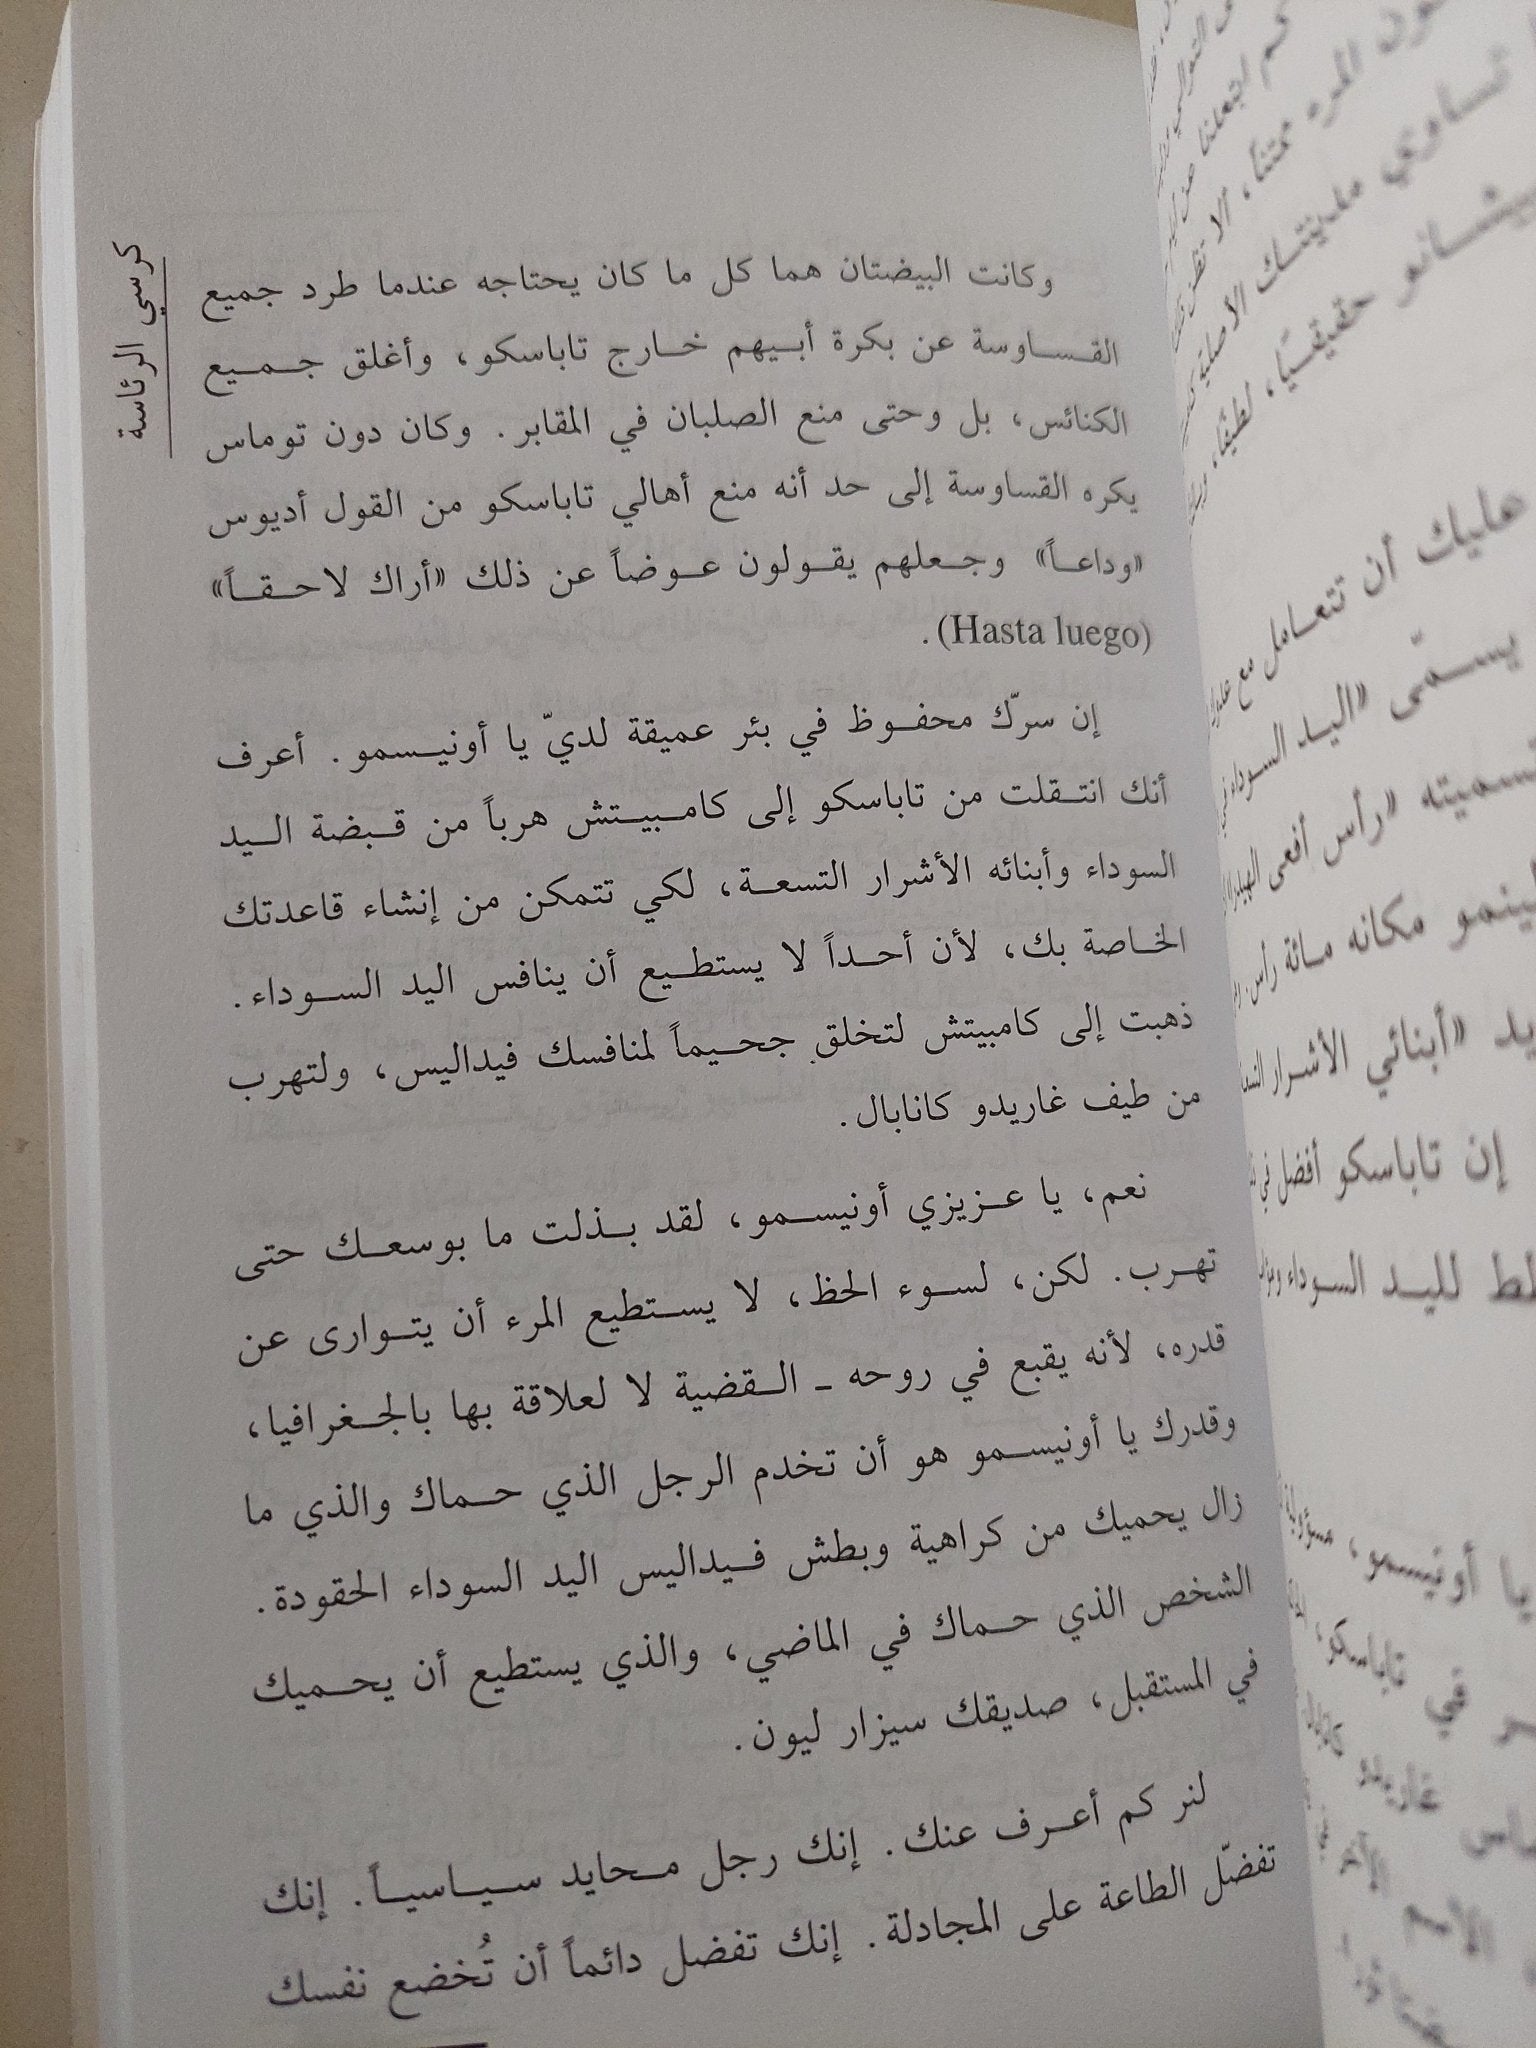 كرسي الرئاسة
وكانت البيضتان هما كل ما كان يحتاجه عندما طرد جميع
القساوسة عن بكرة أبيهم خارج تاباسكو، وأغلق جميع
الكنائس، بل وحتى منع الصلبان في المقابر. وكان دون توماس
يكره القساوسة إلى حد أنه منع أهالي تاباسكو من القول أديوس
«وداعاً» وجعلهم يقولون عوضاً عن ذلك «أراك لاحقاً»
(Hasta luego).
إن سرّك محفوظ في بئر عميقة لديّ يا أونيسمو. أعرف
أنك انتقلت من تاباسكو إلى كامبيتش هرباً من قبضة اليد
السوداء وأبنائه الأشرار التسعة، لكي تتمكن من إنشاء قاعدتك
الخاصة بك، لأن أحداً لا يستطيع أن ينافس اليد السوداء.
ذهبت إلى كامبيتش لتخلق جحيماً لمنافسك فيداليس، ولتهرب
من طيف غاريدو كانابال.
نعم، يا عزيزي أونيسمو، لقد بذلت ما بوسعك حتى
تهرب. لكن، لسوء الحظ، لا يستطيع المرء أن يتوارى عن
قدره، لأنه يقبع في روحه ـ القضية لا لعلاقة بها بالجغرافيا،
وقدرك يا أونيسمو هو أن تخدم الرجل الذي حماك والذي ما
زال يحميك من كراهية وبطش فيداليس اليد السوداء الحقودة.
الشخص الذي حماك في الماضي، والذي يستطيع أن يحميك
في المستقبل، صديقك سيزار ليون.
لنر كم أعرف عنك. إنك رجل محايد سياسياً. إنك
تفضّل الطاعة على المجادلة. إنك تفضل دائماً أن تُخضع نفسك
تساوي مدينتك الأصلية
حقيقيًا، لطيفًا،
عليك أن تتعامل مع
يسمّى «اليد السوداء
تسميته «رأس أفعى
مكانه مائة رأس.
«أبنائي الأشرار
إن تاباسكو أفضل في
لليد السوداء
يا أونيسمو،
في تاباسكو،